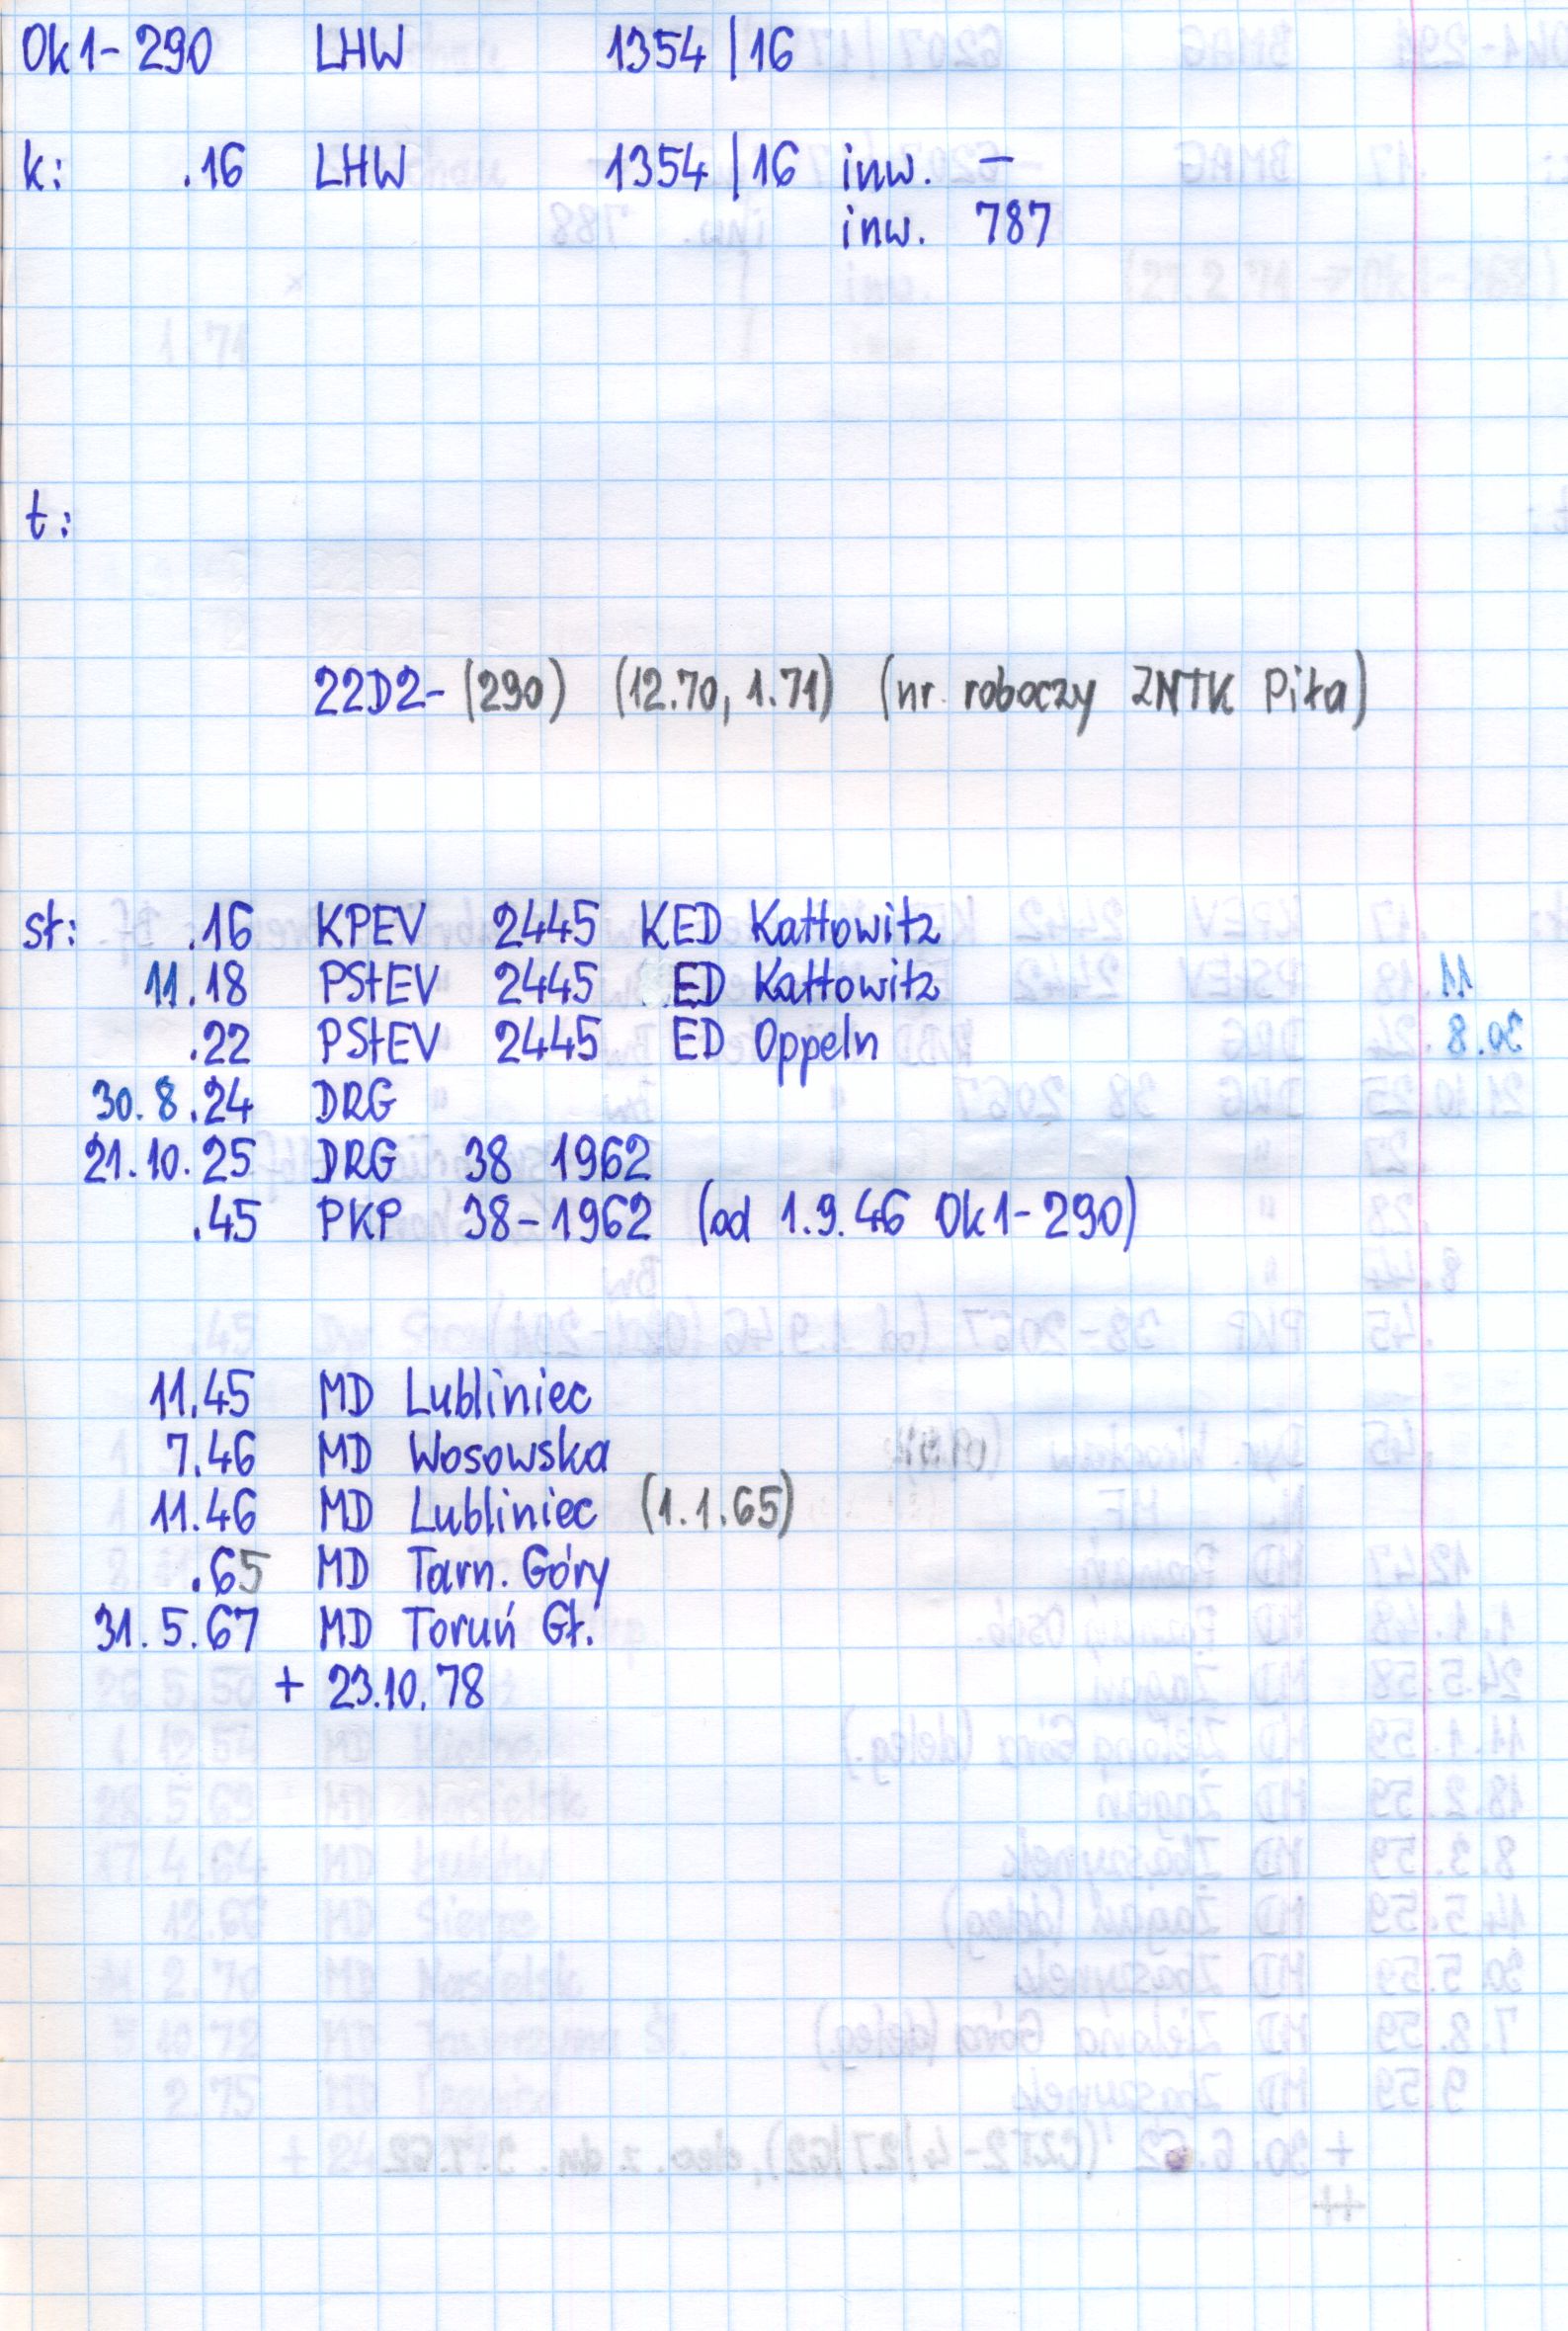 Ok1-290 LHW 1354/16
k: .16 LHW 1354/16 inw. –
inw. 787
t:
22D2-(290) (12.70, 1.71) (nr roboczy ZNTK Piła)
st: .16 KPEV 2445 KED Kattowitz
11.18 PStEV 2445 ED Kattowitz
.22 PStEV 2445 ED Oppeln
30.8.24 DRG
21.10.25 DRG 38 1962
.45 PKP 38-1962 (od 1.9.46 Ok1-290)
11.45 MD Lubliniec
7.46 MD Wosowska
11.46 MD Lubliniec (1.1.65)
.65 MD Tarn. Góry
31.5.67 MD Toruń Gł.
+ 23.10.78